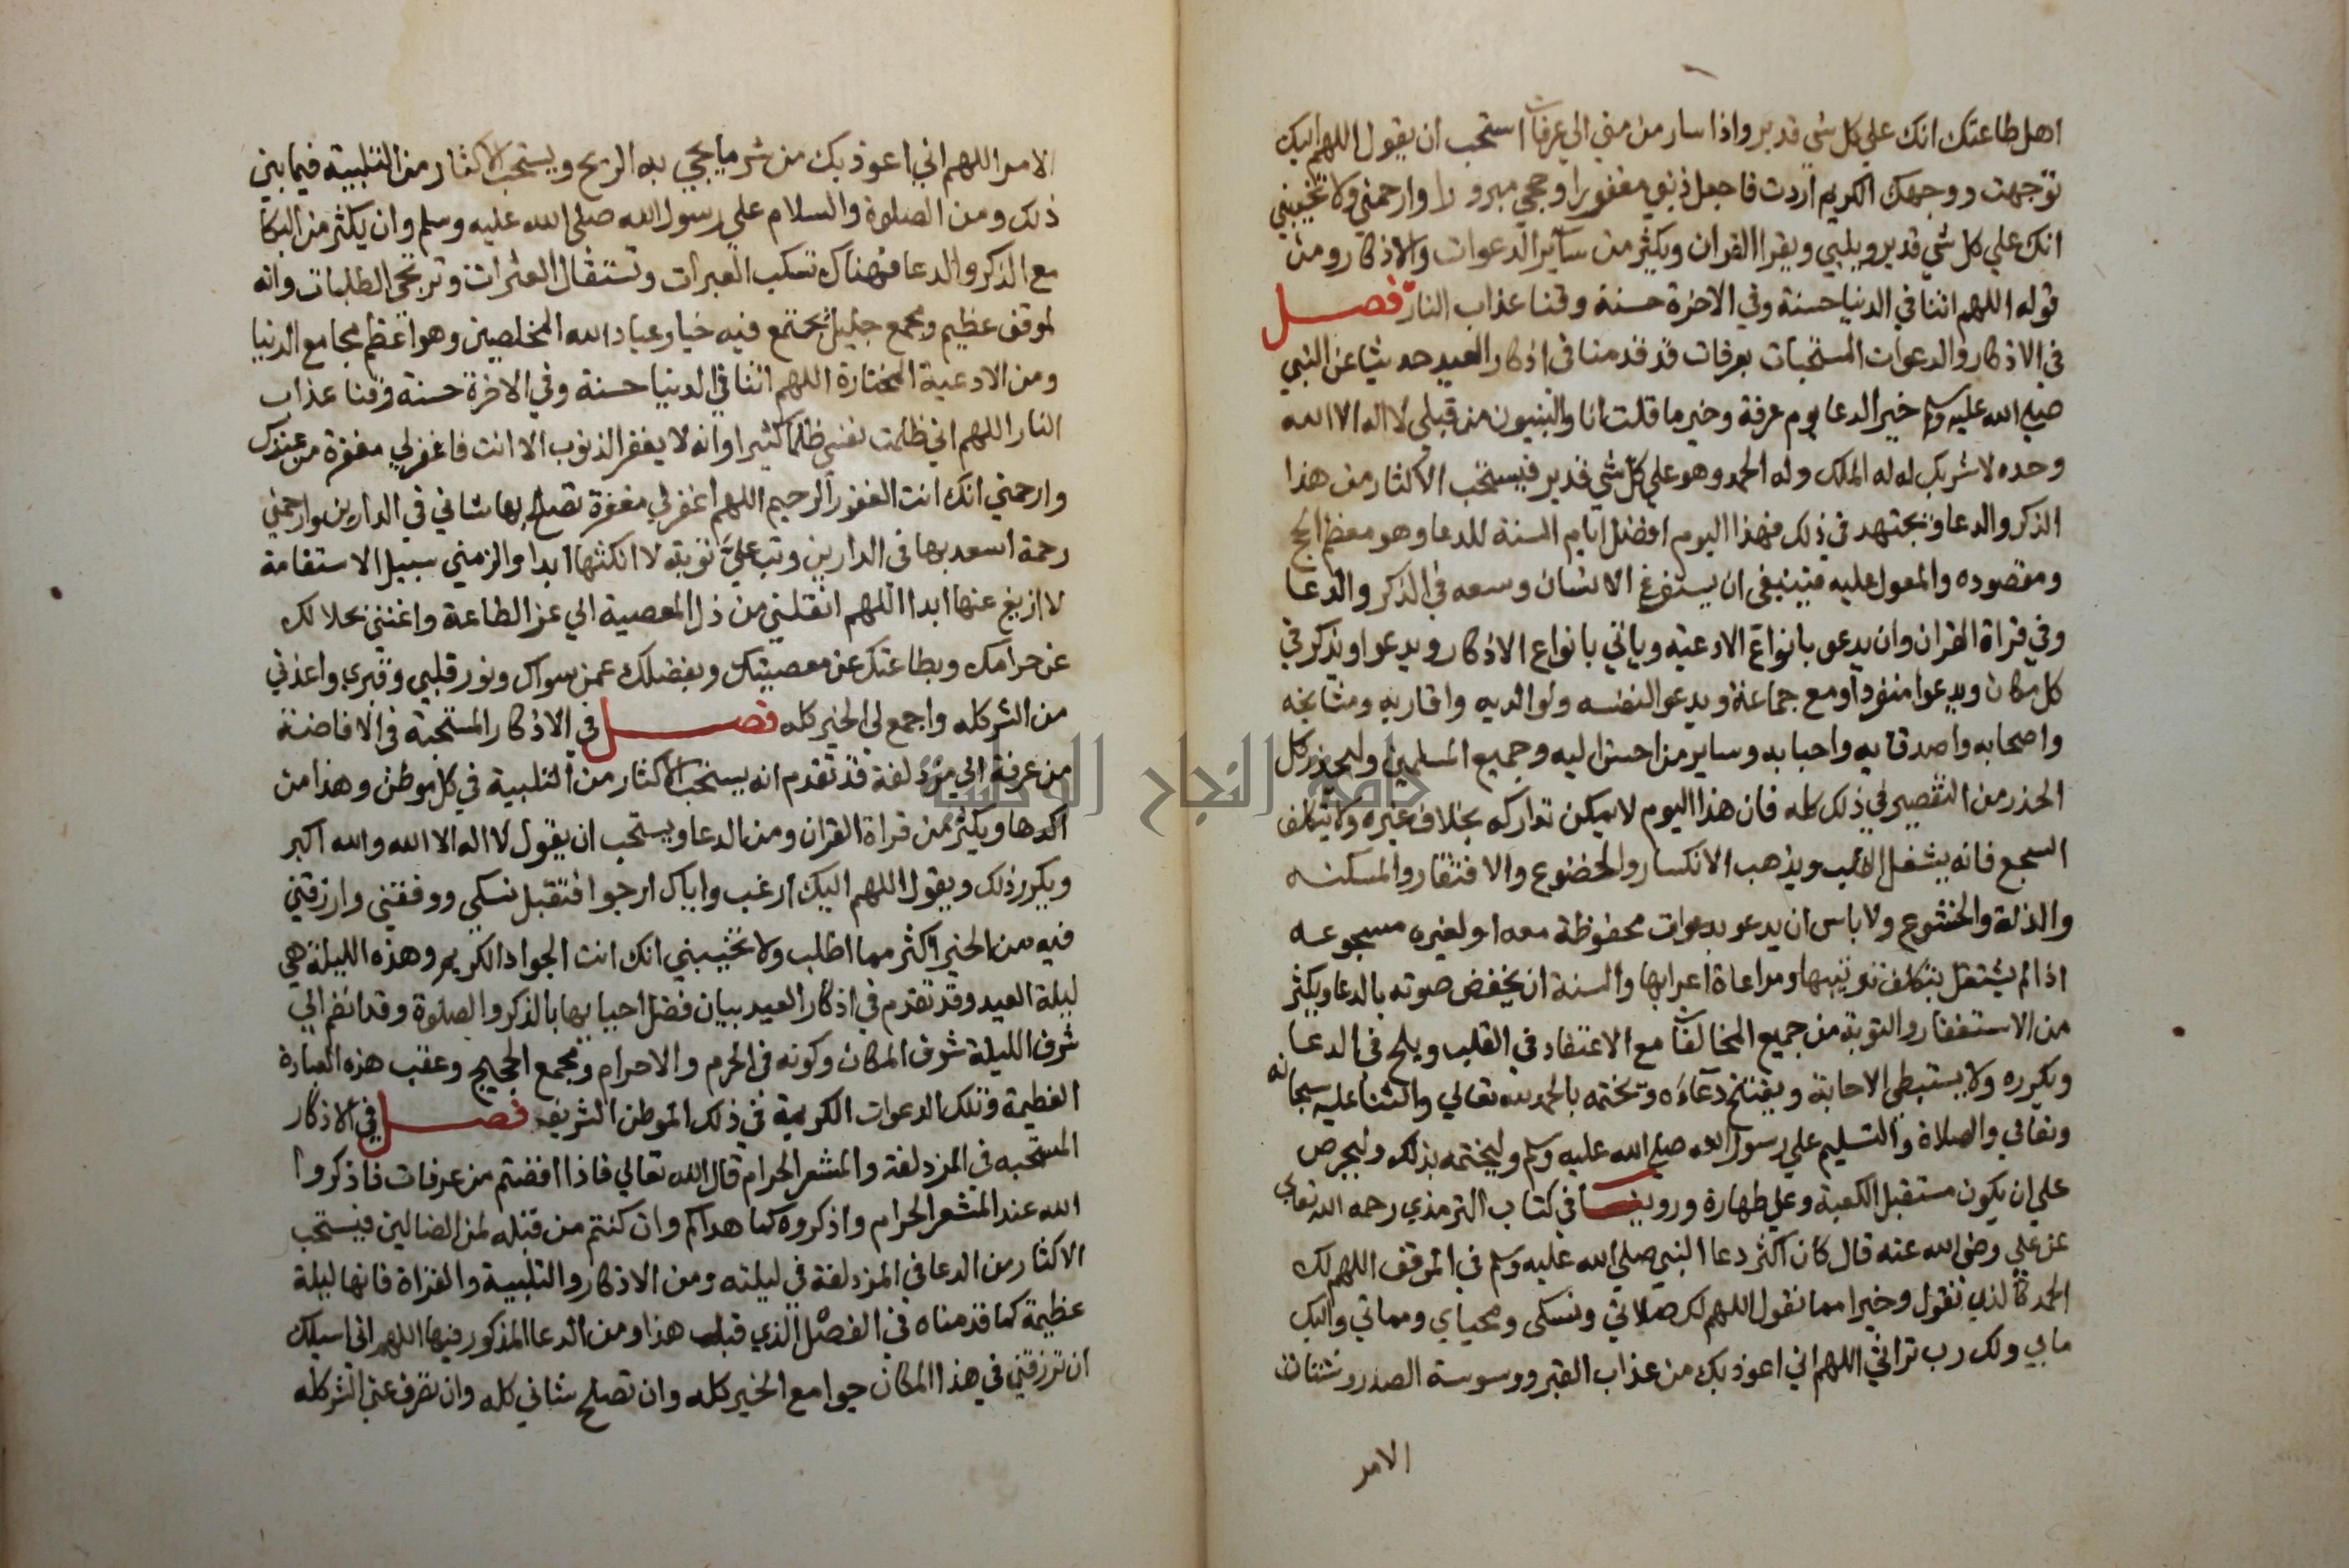 اهل طاعتك انك علي كل شي قدير واذا سار من مني الي عرفات استحب ان يقول اللهم اليك
توجهت ووجهك الكريم اردت فاجعل ذنبي مغفورا وحجي مبرورا وارحمني ولا تخيبني
انك علي كل شي قدير ويلبي ويقرا القران ويكثر من ساير الدعوات والاذكار ومن
قوله اللهم اتنا في الدنيا حسنة وفي الاخرة حسنة وقنا عذاب النار فصل
في الاذكار والدعوات المستحبات بعرفات قد قدمنا في اذكار العيد حديثا عن النبي
صلي الله عليه وسلم خير الدعا يوم عرفة وخير ما قلت انا والنبيون من قبلي لا اله الا الله
وحده لا شريك له له الملك وله الحمد وهو علي كل شي قدير فيستحب الاكثار من هذا
الذكر والدعا ويجتهد في ذلك فهذا اليوم افضل ايام السنة للدعا وهو معظم الحج
ومقصوده والمعول عليه فينبغي ان يستفرغ الانسان وسعه في الذكر والدعا
وفي قراة القران وان يدعو بانواع الادعية وياتي بانواع الاذكار ويدعوا ويذكر في
كل مكان ويدعوا منفردا ومع جماعة ويدعو النفسه ولوالديه واقاربه ومشايخه
واصحابه واصدقايه واحبابه وساير من احسن اليه وجميع المسلمين وليحذر كل
الحذر من التقصير في ذلك كله فان هذا اليوم لا يمكن تداركه بخلاف غيره ولا يتكلف
السجع فانه يشغل القلب ويذهب الانكسار والخضوع والافتقار والمسكنه
والذلة والخشوع ولا باس ان يدعو بدعوات محفوظة معه او لغيره مسجوعه
اذا لم يشتغل بتكلف ترتيبها ومراعاة اعرابها والسنة ان يخفض صوته بالدعا ويكثر
من الاستغفار والتوبة من جميع المخالفات مع الاعتقاد في القلب ويلح في الدعا
ويكرره ولا يستبطي الاجابة ويفتتح دعآءه وتختمه بالحمد لله تعالي والثنا عليه سبحانه
وتعالي والصلاة والتسليم علي رسول الله صلي الله عليه وسلم وليختمه بذلك وليحرص
علي ان يكون مستقبل الكعبة وعلي طهارة وروينا في كتاب الترمذي رحمه الله تعالي
عن علي رضي الله عنه قال كان اكثر دعا النبي صلي الله عليه وسلم في الموقف اللهم لك
الحمد كالذي نقول وخيرا مما نقول اللهم لك صلاتي ونسكي ومحياي ومماتي واليك
مابي ولك رب تراثي اللهم اني اعوذ بك من عذاب القبر ووسوسة الصدر وشتات
الامر
الامر اللهم اني اعوذ بك من شر ما يجي به الريح ويستحب الاكثار من التلبية فيما بين
ذلك ومن الصلوة والسلام علي رسول الله صلى الله عليه وسلم وان يكثر من البكا
مع الذكر والدعا فهناك تسكب العبرات وتستقال العثرات وترتجي الطلبات وانه
لموقف عظيم ومجمع جليل تجتمع فيه خيار عباد الله المخلصين وهو اعظم مجامع الدنيا
ومن الادعية المختارة اللهم اتنا في الدنيا حسنة وفي الاخرة حسنة وقنا عذاب
النار اللهم اني ظلمت نفسي ظلما كثيرا وانه لا يغفر الذنوب الا انت فاغفر لي مغفرة من عندك
وارحمني انك انت الغفور الرحيم اللهم اغفر لي مغفرة تصلح بها شاني في الدارين وارحمني
رحمة اسعد بها في الدارين وتب عليَّ توبة لا انكثها ابدا والزمني سبيل الاستقامة
لا ازيغ عنها ابدا اللهم انقلني من ذل المعصية الي عز الطاعة واغنني بحلالك
عن حرامك وبطاعتك عن معصيتك وبفضلك عمن سواك ونور قلبي وقبري واعذني
من الشر كله واجمع لي الخير كله فصل في الاذكار المستحبة في الافاضة
من عرفة الي مزدلفة قد تقدم انه يستحب الاكثار من التلبية في كل موطن وهذا من
اكدها ويكثر من قراة القران ومن الدعا ويستحب ان يقول لا اله الا الله والله اكبر
ويكرر ذلك ويقول اللهم اليك ارغب واياك ارجوا فتقبل نسكي ووفقني وارزقني
فيه من الخير اكثر مما اطلب ولا تخيبني انك انت الجواد الكريم وهذه الليلة هي
ليلة العيد وقد تقدم في اذكار العيد بيان فضل احيايها بالذكر والصلوة وقد انضم الي
شرف الليلة شرف المكان وكونه في الحرم والاحرام ومجمع الحجيج وعقب هذه العبادة
العظيمة وتلك الدعوات الكريمة في ذلك الموطن الشريف فصل في الاذكار
المستحبه في المزدلفة والمشعر الحرام قال الله تعالي فاذا افضتم من عرفات فاذكروا
الله عند المشعر الحرام واذكروه كما هداكم وان كنتم من قبله لمن الضالين فيستحب
الاكثار من الدعا في المزدلفة في ليلته ومن الاذكار والتلبية والقراة فانها ليلة
عظيمة كما قدمناه في الفصل الذي قبل هذا ومن الدعا المذكور فيها اللهم اني اسيلك
ان ترزقني في هذا المكان جوامع الخير كله وان تصلح شاني كله وان تصرف عني الشر كله
جامعة النجاح الوطنية